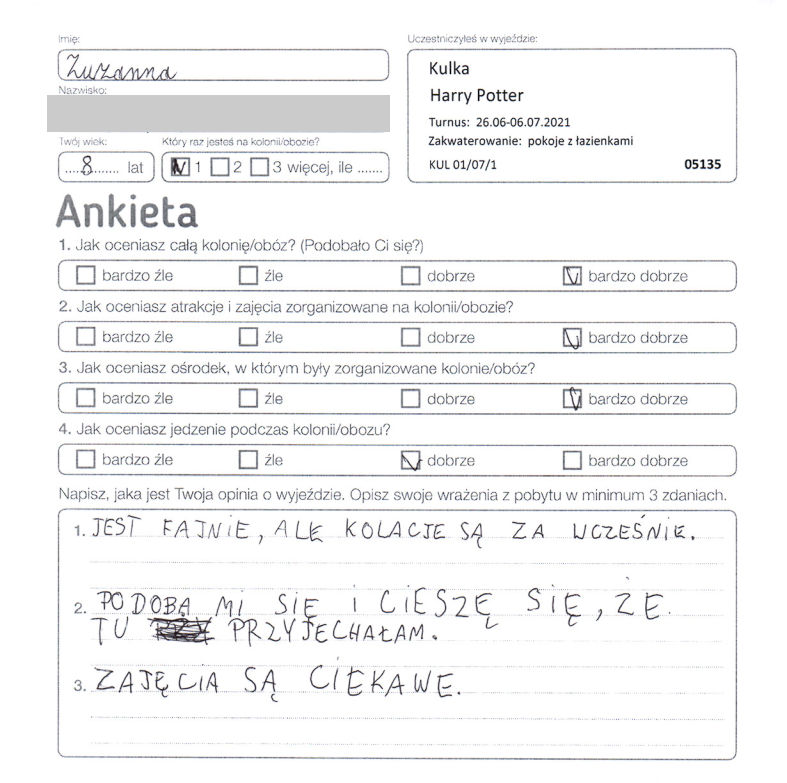 Imię:
Zuzanna
Nazwisko:
Twój wiek:
8 lat
Który raz jesteś na kolonii/obozie?
1 2 3 więcej, ile .......
Uczestniczyłeś w wyjeździe:
Kulka
Harry Potter
Turnus: 26.06-06.07.2021
Zakwaterowanie: pokoje z łazienkami
KUL 01/07/1 05135
Ankieta
1. Jak oceniasz całą kolonię/obóz? (Podobało Ci się?)
bardzo źle źle dobrze bardzo dobrze
2. Jak oceniasz atrakcje i zajęcia zorganizowane na kolonii/obozie?
bardzo źle źle dobrze bardzo dobrze
3. Jak oceniasz ośrodek, w którym były zorganizowane kolonie/obóz?
bardzo źle źle dobrze bardzo dobrze
4. Jak oceniasz jedzenie podczas kolonii/obozu?
bardzo źle źle dobrze bardzo dobrze
Napisz, jaka jest Twoja opinia o wyjeździe. Opisz swoje wrażenia z pobytu w minimum 3 zdaniach.
1. JEST FAJNIE, ALE KOLACJE SĄ ZA WCZEŚNIE.
2. PODOBA MI SIĘ I CIESZĘ SIĘ, ŻE
TU PRZYJECHAŁAM.
3. ZAJĘCIA SĄ CIEKAWE.